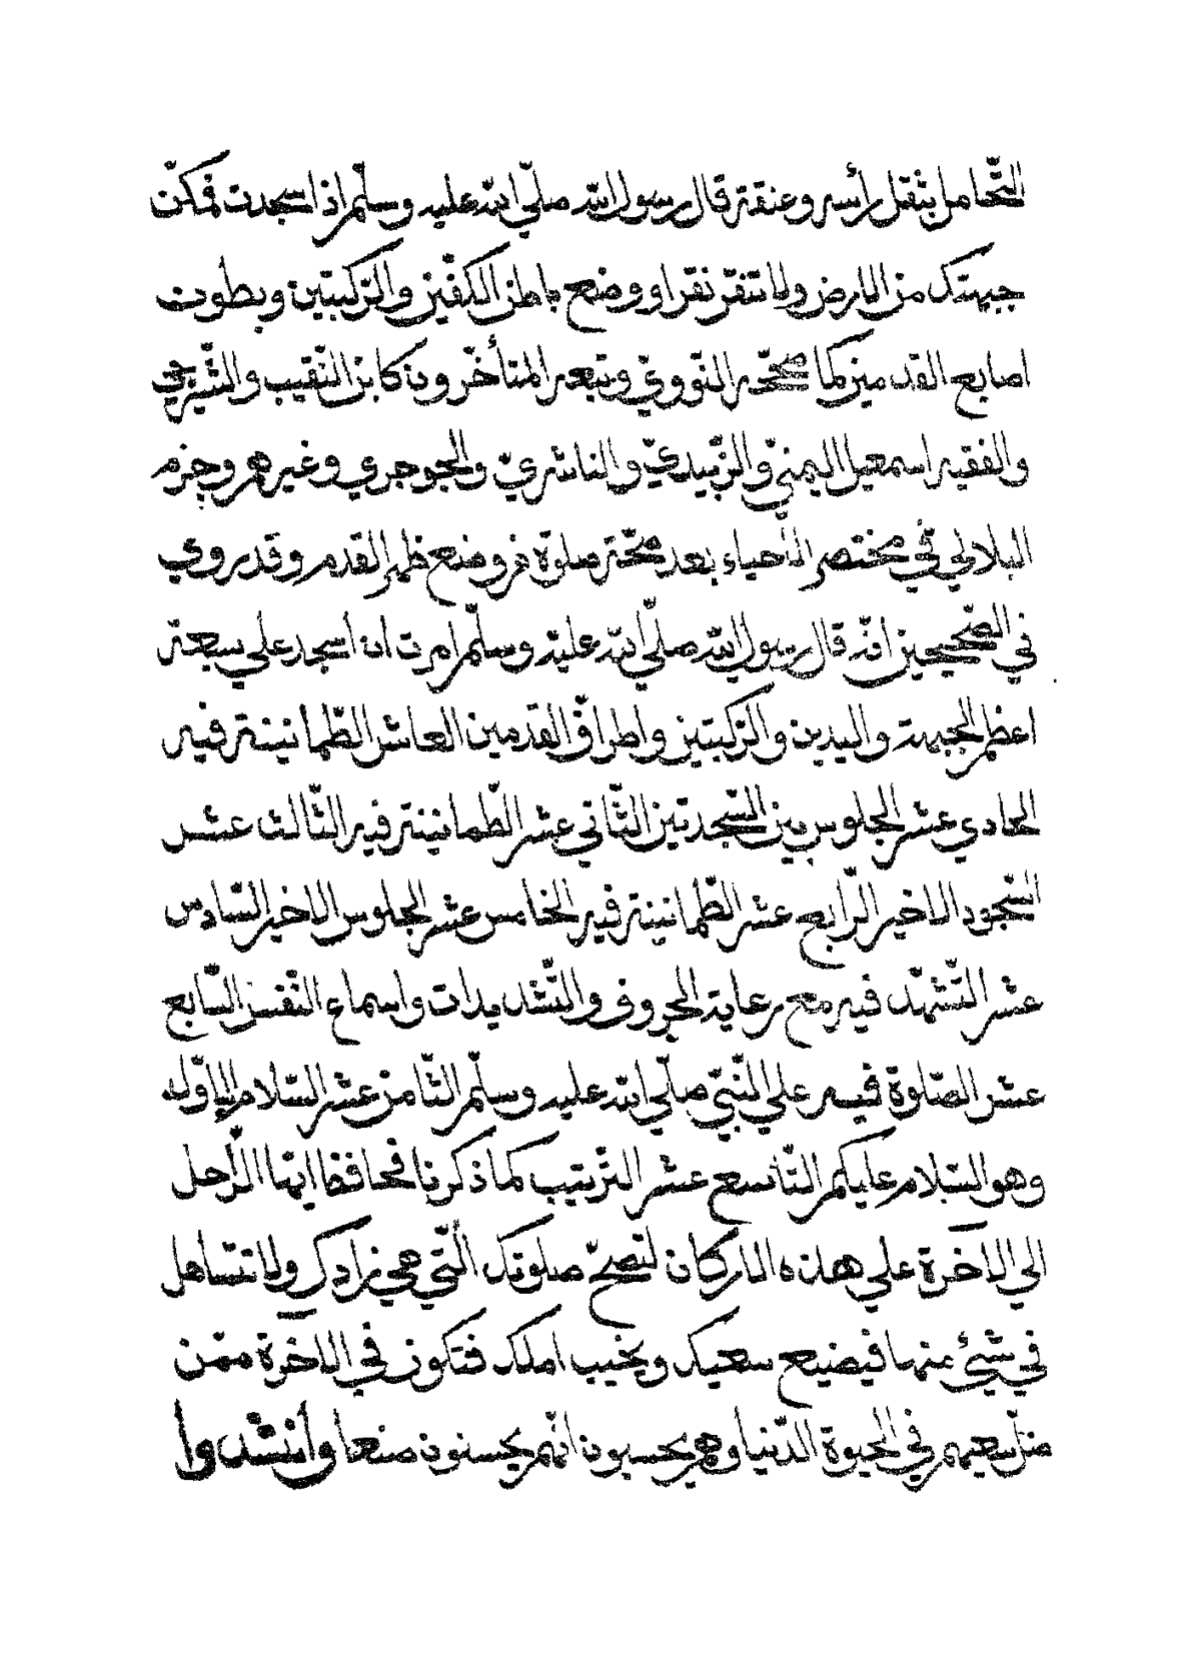 التّحامل بثقل رأسه وعنقه قال رسول الله صلّي الله عليه وسلّم اذا سجدت فمكّن
جبهتك من الارض ولا تنقر نقرا ووضع باطن الكفّين والرّكبتين وبطون
اصابع القدمين كما صحّحه النّوويّ وتبعه المتأخّرون كابن النّقيب والشّيرجي
والفقيه اسمعيل اليمنيّ والزّبيديّ والناشريّ والجوجري وغيرهم وجزم
البلالي في مختصر الاحياء بعد صحّة صلوة من وضع ظهر القدم وقد روي
في الصّحيحين انّه قال رسول الله صلّي الله عليه وسلّم امرت ان اسجد علي سبعة
اعظم الجبهة واليدين والرّكبتين واطراف القدمين العاشر الطّمانينة فيه
الحادي عشر الجلوس بين السّجدتين الثّاني عشر الطّمانينة فيه الثّالث عشر
السّجود الاخير الرّابع عشر الطّمانينة فيه الخامس عشر الجلوس الاخير السّادس
عشر التّشهّد فيه مع رعاية الحروف والتّشديدات واسماع النّفس السّابع
عشر الصّلوة فيه علي النّبيّ صلّي الله عليه وسلّم الثّامن عشر السّلام الاوّل
وهو السّلام عليكم التّاسع عشر التّرتيب كما ذكرنا فحافظ ايّها الرّاحل
الي الآخرة علي هذه الاركان لتصحّ صلوتك الّتي هي زادك ولا تتساهل
في شيئ منها فيضيع سعيك ويخيب املك فتكون في الآخرة ممّن
ضلّ سعيهم في الحيوة الدّنيا وهم يحسبون انّهم يحسنون صنعا وأنشدوا